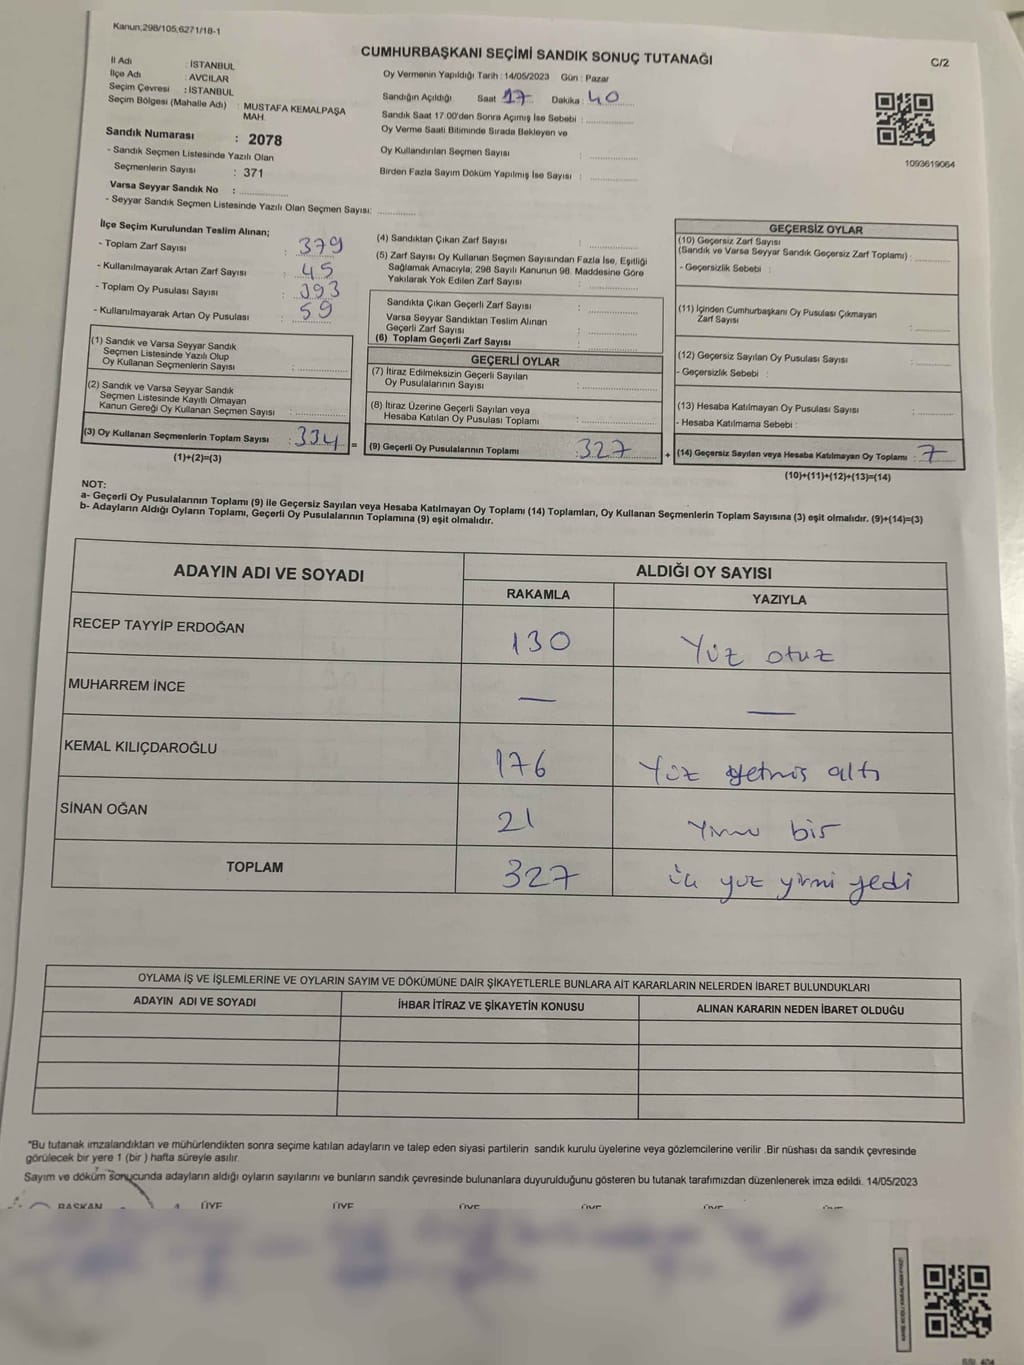 Kanun;298/105,6271/18-1
CUMHURBAŞKANI SEÇİMİ SANDIK SONUÇ TUTANAĞI
C/2
İl Adı : İSTANBUL
İlçe Adı : AVCILAR
Seçim Çevresi : İSTANBUL
Seçim Bölgesi (Mahalle Adı) : MUSTAFA KEMALPAŞA MAH.
Sandık Numarası : 2078
- Sandık Seçmen Listesinde Yazılı Olan
Seçmenlerin Sayısı : 371
Varsa Seyyar Sandık No :
- Seyyar Sandık Seçmen Listesinde Yazılı Olan Seçmen Sayısı:
Oy Vermenin Yapıldığı Tarih : 14/05/2023 Gün : Pazar
Sandığın Açıldığı Saat 17 Dakika : 40
Sandık Saat 17:00'den Sonra Açılmış İse Sebebi :
Oy Verme Saati Bitiminde Sırada Bekleyen ve
Oy Kullandırılan Seçmen Sayısı :
Birden Fazla Sayım Döküm Yapılmış İse Sayısı :
1093619064
İlçe Seçim Kurulundan Teslim Alınan;
- Toplam Zarf Sayısı : 379
- Kullanılmayarak Artan Zarf Sayısı : 45
- Toplam Oy Pusulası Sayısı : 393
- Kullanılmayarak Artan Oy Pusulası : 59
(1) Sandık ve Varsa Seyyar Sandık
Seçmen Listesinde Yazılı Olup
Oy Kullanan Seçmenlerin Sayısı :
(2) Sandık ve Varsa Seyyar Sandık
Seçmen Listesinde Kayıtlı Olmayan
Kanun Gereği Oy Kullanan Seçmen Sayısı :
(3) Oy Kullanan Seçmenlerin Toplam Sayısı : 334 =
(1)+(2)=(3)
(4) Sandıktan Çıkan Zarf Sayısı :
(5) Zarf Sayısı Oy Kullanan Seçmen Sayısından Fazla İse, Eşitliği
Sağlamak Amacıyla; 298 Sayılı Kanunun 98. Maddesine Göre
Yakılarak Yok Edilen Zarf Sayısı :
Sandıkta Çıkan Geçerli Zarf Sayısı :
Varsa Seyyar Sandıktan Teslim Alınan
Geçerli Zarf Sayısı :
(6) Toplam Geçerli Zarf Sayısı :
GEÇERLİ OYLAR
(7) İtiraz Edilmeksizin Geçerli Sayılan
Oy Pusulalarının Sayısı :
(8) İtiraz Üzerine Geçerli Sayılan veya
Hesaba Katılan Oy Pusulası Toplamı :
(9) Geçerli Oy Pusulalarının Toplamı : 327 +
GEÇERSİZ OYLAR
(10) Geçersiz Zarf Sayısı
(Sandık ve Varsa Seyyar Sandık Geçersiz Zarf Toplamı) :
- Geçersizlik Sebebi :
(11) İçinden Cumhurbaşkanı Oy Pusulası Çıkmayan
Zarf Sayısı :
(12) Geçersiz Sayılan Oy Pusulası Sayısı :
- Geçersizlik Sebebi :
(13) Hesaba Katılmayan Oy Pusulası Sayısı :
- Hesaba Katılmama Sebebi :
(14) Geçersiz Sayılan veya Hesaba Katılmayan Oy Toplamı : 7
(10)+(11)+(12)+(13)=(14)
NOT:
a- Geçerli Oy Pusulalarının Toplamı (9) ile Geçersiz Sayılan veya Hesaba Katılmayan Oy Toplamı (14) Toplamları, Oy Kullanan Seçmenlerin Toplam Sayısına (3) eşit olmalıdır. (9)+(14)=(3)
b- Adayların Aldığı Oyların Toplamı, Geçerli Oy Pusulalarının Toplamına (9) eşit olmalıdır.
ADAYIN ADI VE SOYADI ALDIĞI OY SAYISI
RAKAMLA YAZIYLA
RECEP TAYYİP ERDOĞAN 130 Yüz otuz
MUHARREM İNCE — —
KEMAL KILIÇDAROĞLU 176 Yüz yetmiş altı
SİNAN OĞAN 21 Yirmi bir
TOPLAM 327 yüz yirmi yedi
OYLAMA İŞ VE İŞLEMLERİNE VE OYLARIN SAYIM VE DÖKÜMÜNE DAİR ŞİKAYETLERLE BUNLARA AİT KARARLARIN NELERDEN İBARET BULUNDUKLARI
ADAYIN ADI VE SOYADI İHBAR İTİRAZ VE ŞİKAYETİN KONUSU ALINAN KARARIN NEDEN İBARET OLDUĞU
*Bu tutanak imzalandıktan ve mühürlendikten sonra seçime katılan adayların ve talep eden siyasi partilerin sandık kurulu üyelerine veya gözlemcilerine verilir .Bir nüshası da sandık çevresinde
görülecek bir yere 1 (bir ) hafta süreyle asılır.
Sayım ve döküm sonucunda adayların aldığı oyların sayılarını ve bunların sandık çevresinde bulunanlara duyurulduğunu gösteren bu tutanak tarafımızdan düzenlenerek imza edildi. 14/05/2023
BAŞKAN ÜYE ÜYE ÜYE ÜYE ÜYE